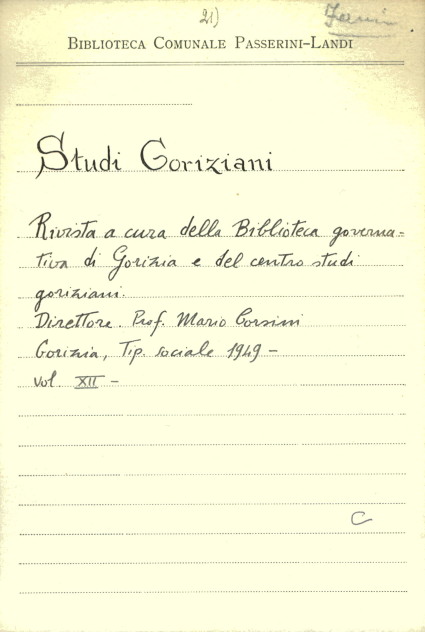 21)
BIBLIOTECA COMUNALE PASSERINI-LANDI
Studi Goriziani
Rivista a cura della Biblioteca governa-
tiva di Gorizia e del centro studi
goriziani.
Direttore. Prof. Mario Corsini
Gorizia, Tip. sociale 1949 -
vol. XII -
C